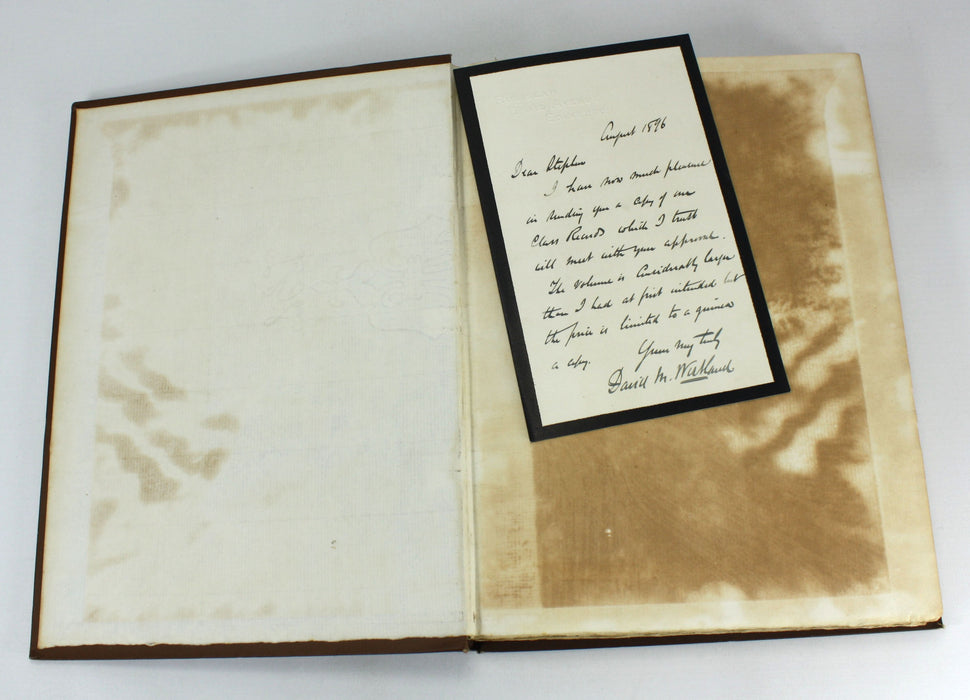 August 1896
Dear Stephen
I have now much pleasure
in sending you a copy of our
Class Records which I trust
will meet with your approval.
The volume is Considerably larger
than I had at first intended but
the price is limited to a guinea
a copy.
Yours very truly
David M.